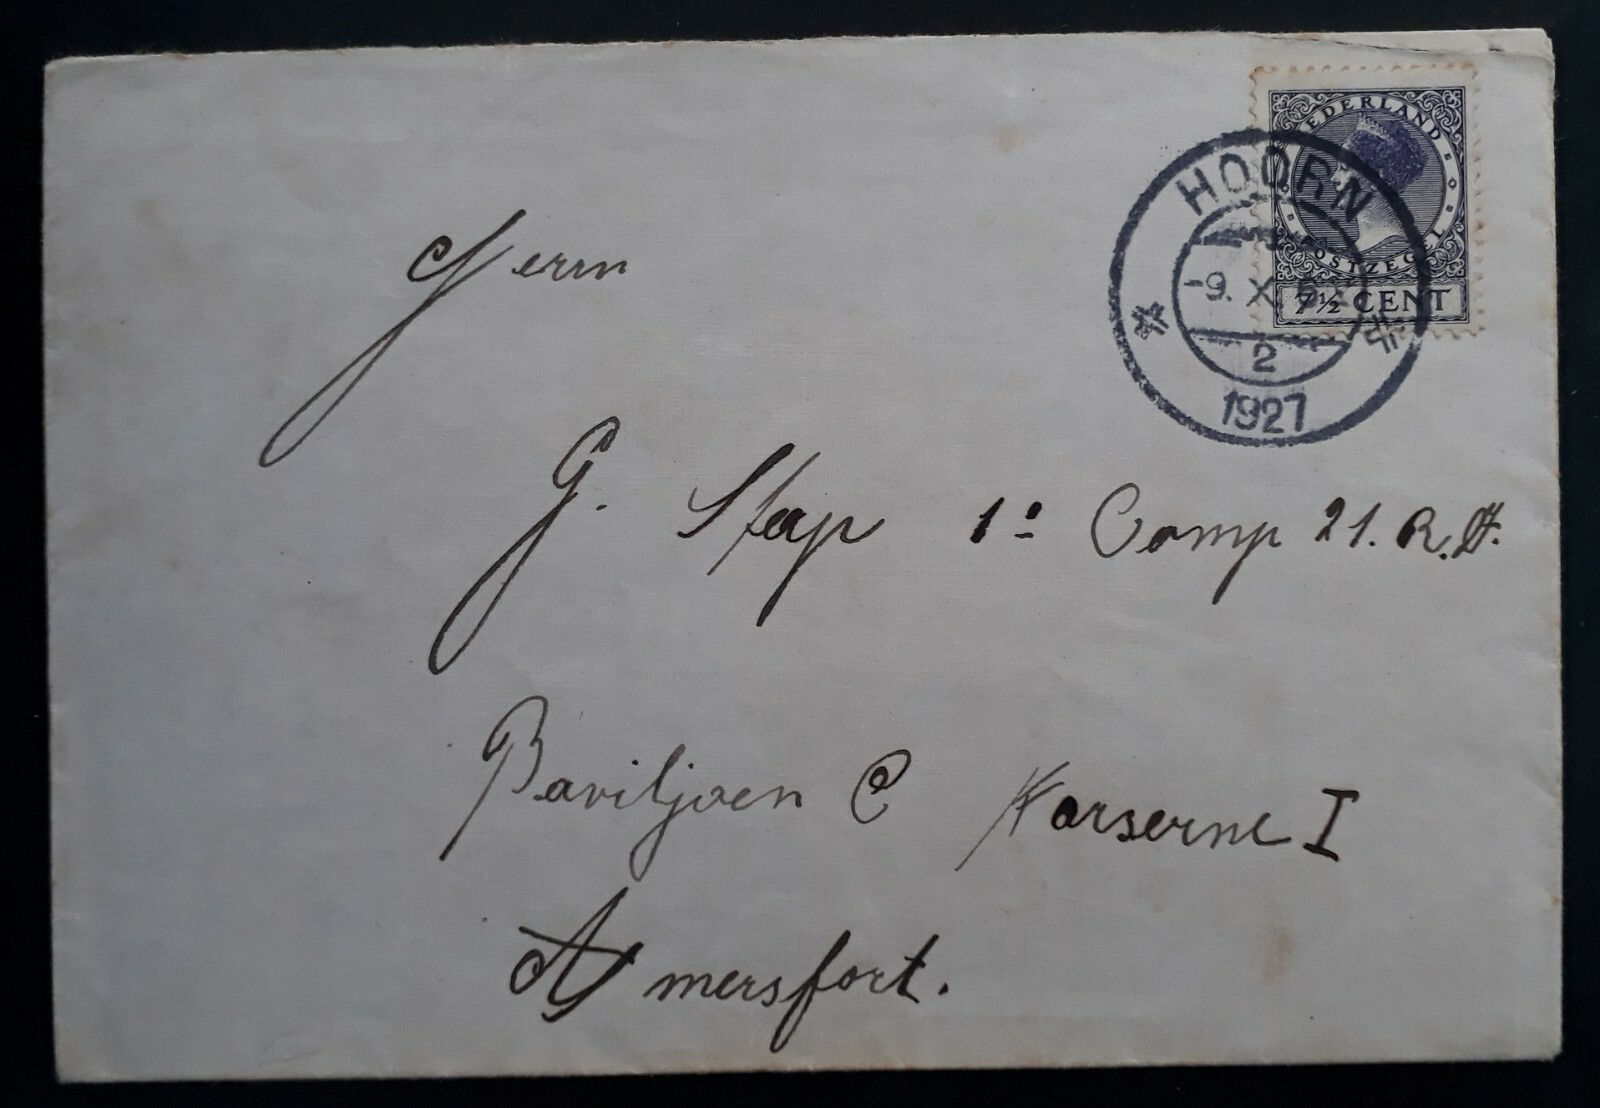 NEDERLAND
POSTZEGEL
7½ CENT
HOORN
-9. X
2
1927
Herrn
G. Stap 1e Comp 21. R.I.
Paviljoen C Karserne I
Amersfort.